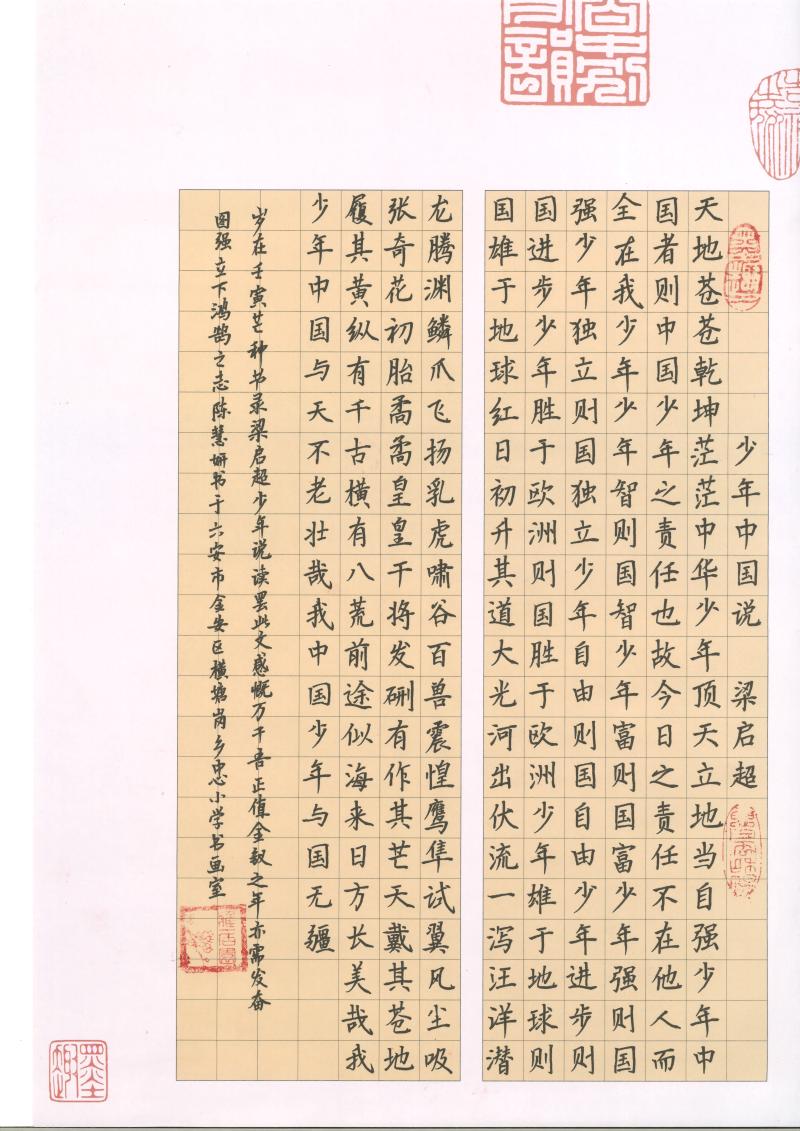 少年中国说 梁启超
天地苍苍乾坤茫茫中华少年顶天立地当自强少年中
国者则中国少年之责任也故今日之责任不在他人而
全在我少年少年智则国智少年富则国富少年强则国
强少年独立则国独立少年自由则国自由少年进步则
国进步少年胜于欧洲则国胜于欧洲少年雄于地球则
国雄于地球红日初升其道大光河出伏流一泻汪洋潜
龙腾渊鳞爪飞扬乳虎啸谷百兽震惶鹰隼试翼风尘吸
张奇花初胎矞矞皇皇干将发硎有作其芒天戴其苍地
履其黄纵有千古横有八荒前途似海来日方长美哉我
少年中国与天不老壮哉我中国少年与国无疆
岁在壬寅芒种书录梁启超少年说读罢此文感慨万千吾正值金钗之年亦需发奋
图强立下鸿鹄之志陈慧书于六安市金安区横塘岗乡中心小学书画室
墨趣